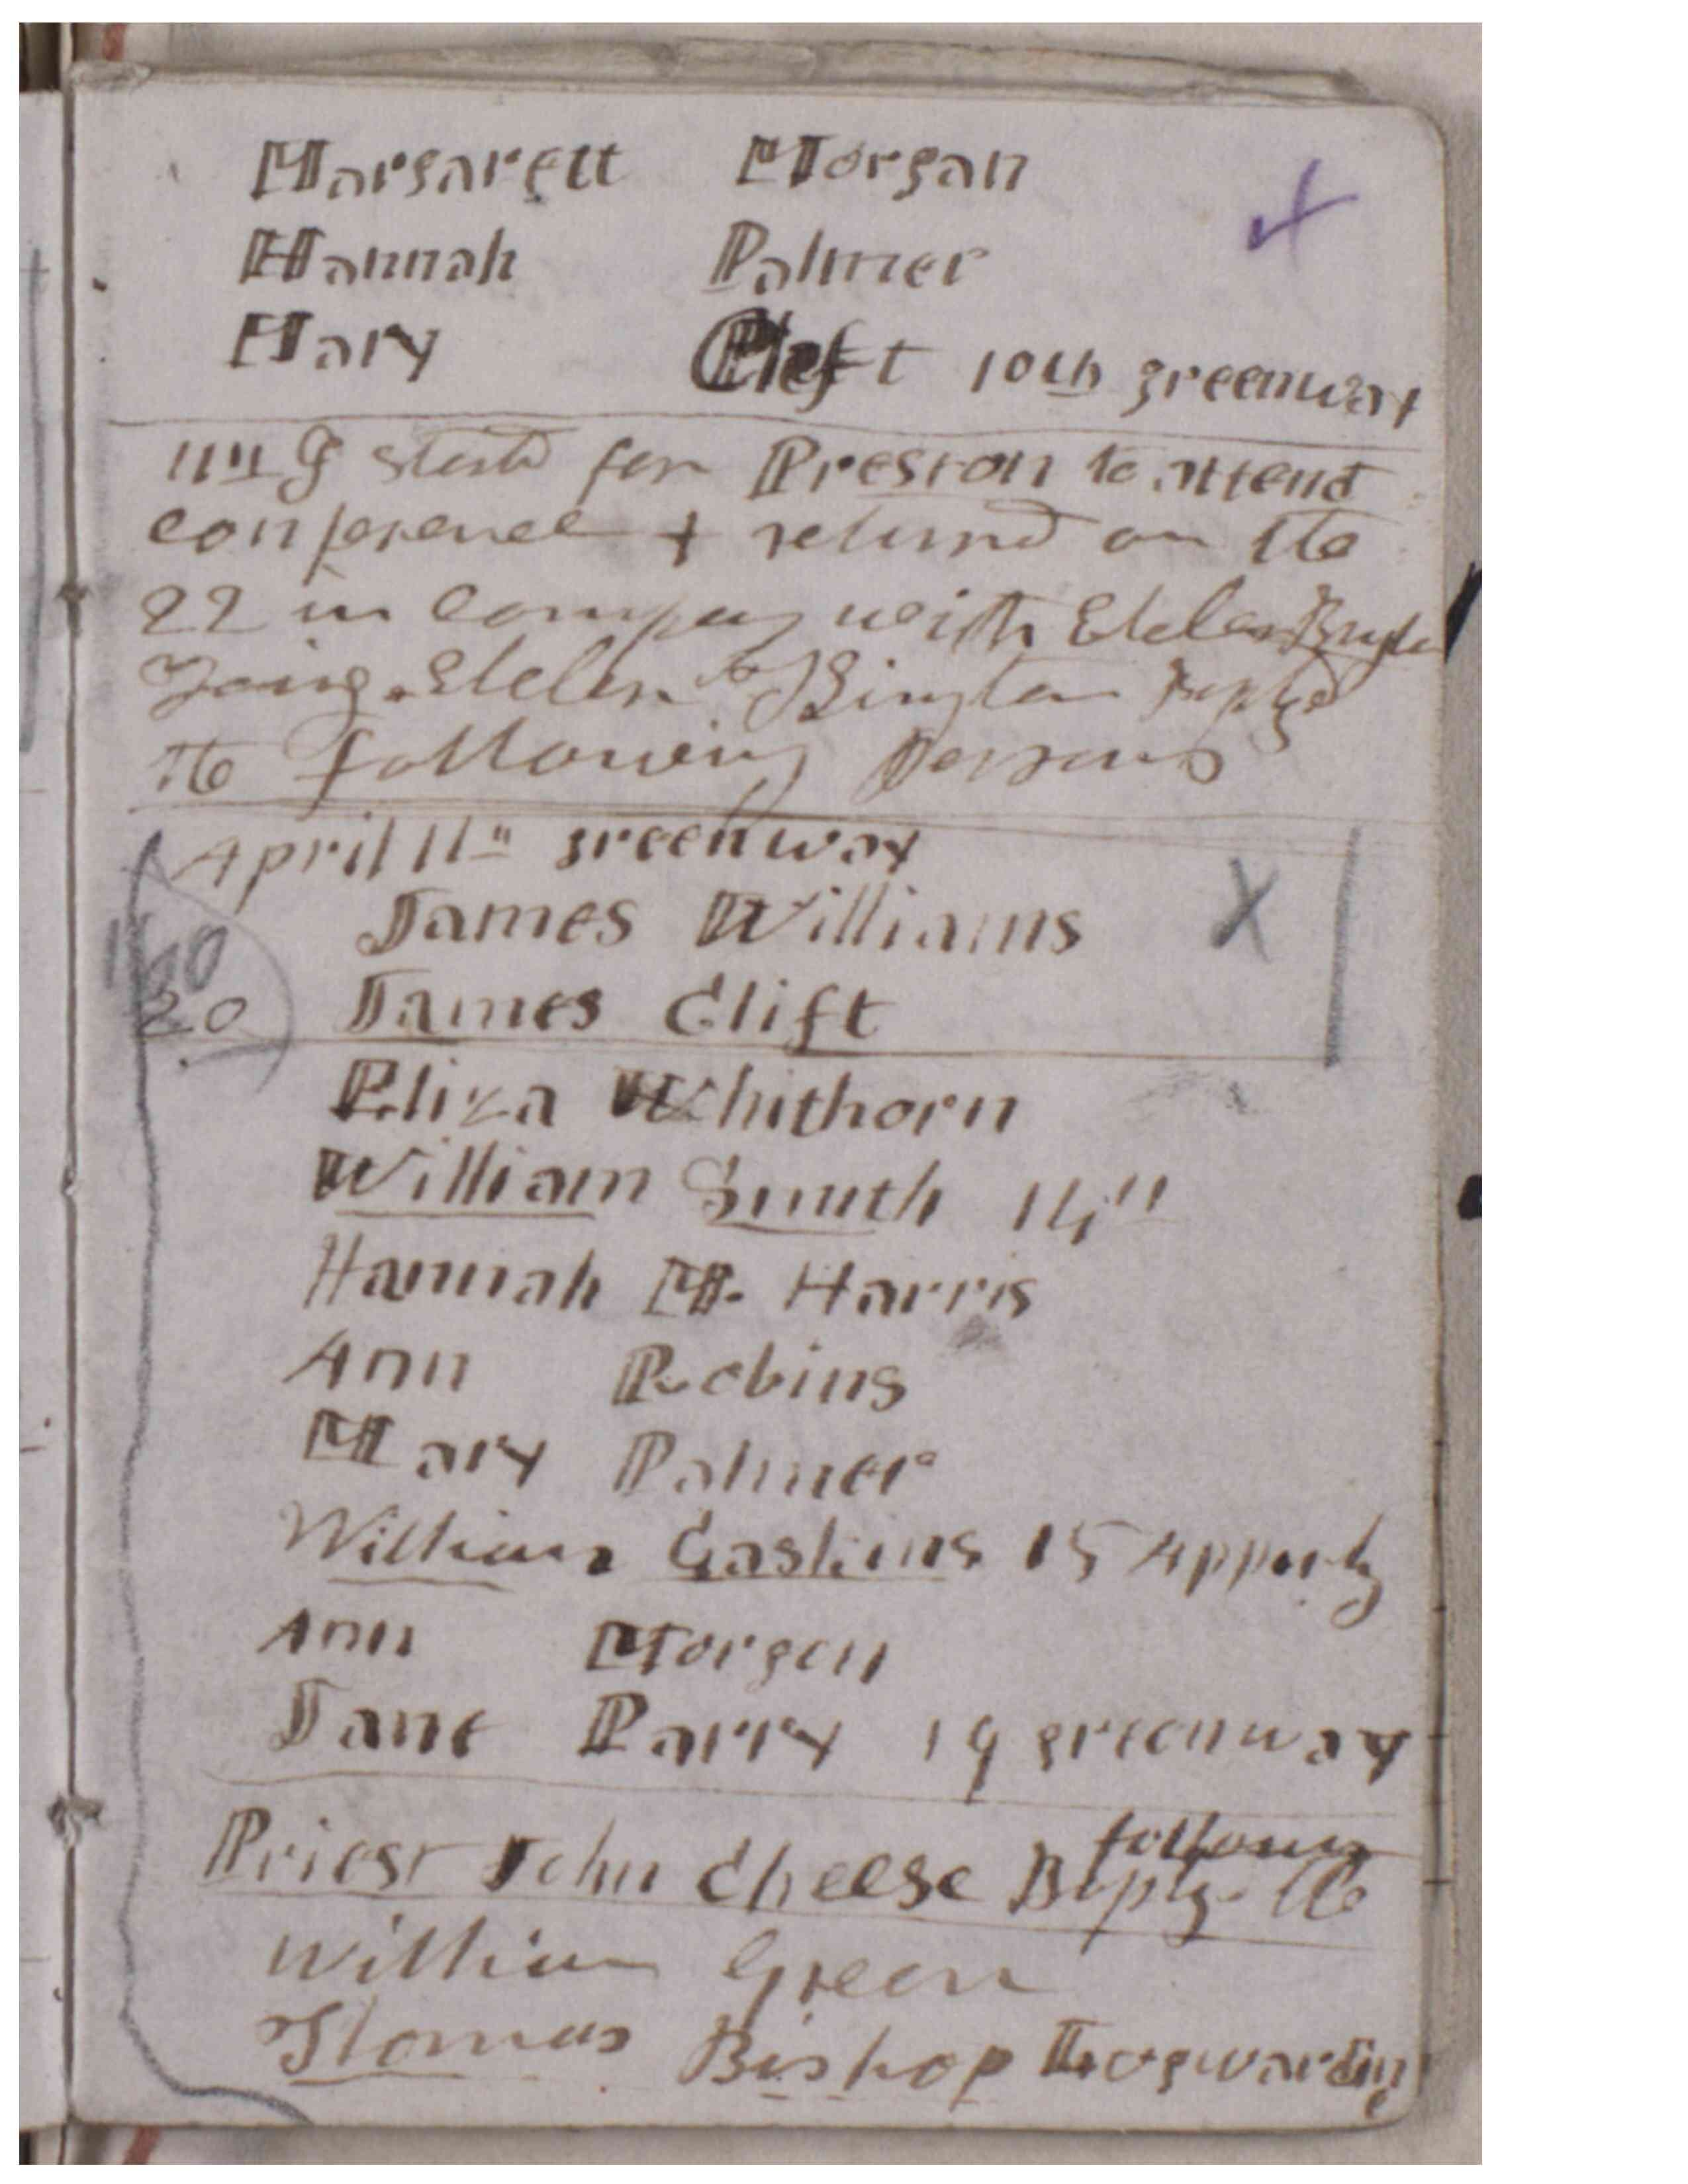 Margarett Morgan
Hannah Palmer
Mary Clift 10th greenway
11th I started for Preston to attend
conference + returnd on the
22 in company with Elder
Young. Elder Kington Baptized
the following persons
April 11th greenway
James Williams X
James Clift
20
Eliza Whithorn
William Smith 14th
Hannah M. Harris
Ann Robins
Mary Palmer
William Gaskins 15 Apperly
Ann Morgan
Jane Parry 19 greenway
following
Priest John Cheese Baptz. the
William Green
Thomas Bishop Lugwardin